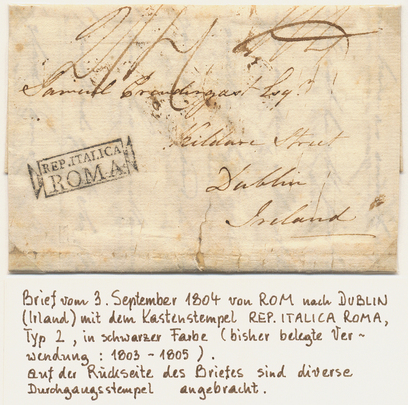 Samuel Prendergast Esqr
Kildare Street
Dublin
Ireland
REP. ITALICA
ROMA
Brief vom 3. September 1804 von ROM nach DUBLIN
(Irland) mit dem Kastenstempel REP. ITALICA ROMA,
Typ 2, in schwarzer Farbe (bisher belegte Ver-
wendung : 1803 - 1805).
auf der Rückseite des Briefes sind diverse
Durchgangsstempel angebracht.